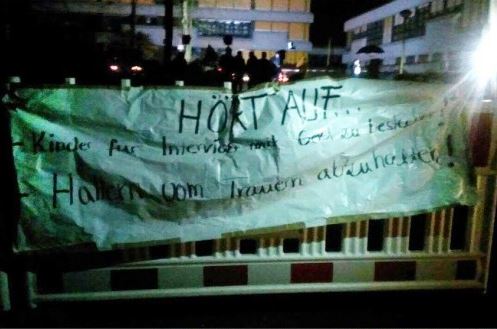 HÖRT AUF...
- Kinder für Interview mit Geld zu bestechen!
- Haltern vom Trauern abzuhalten!